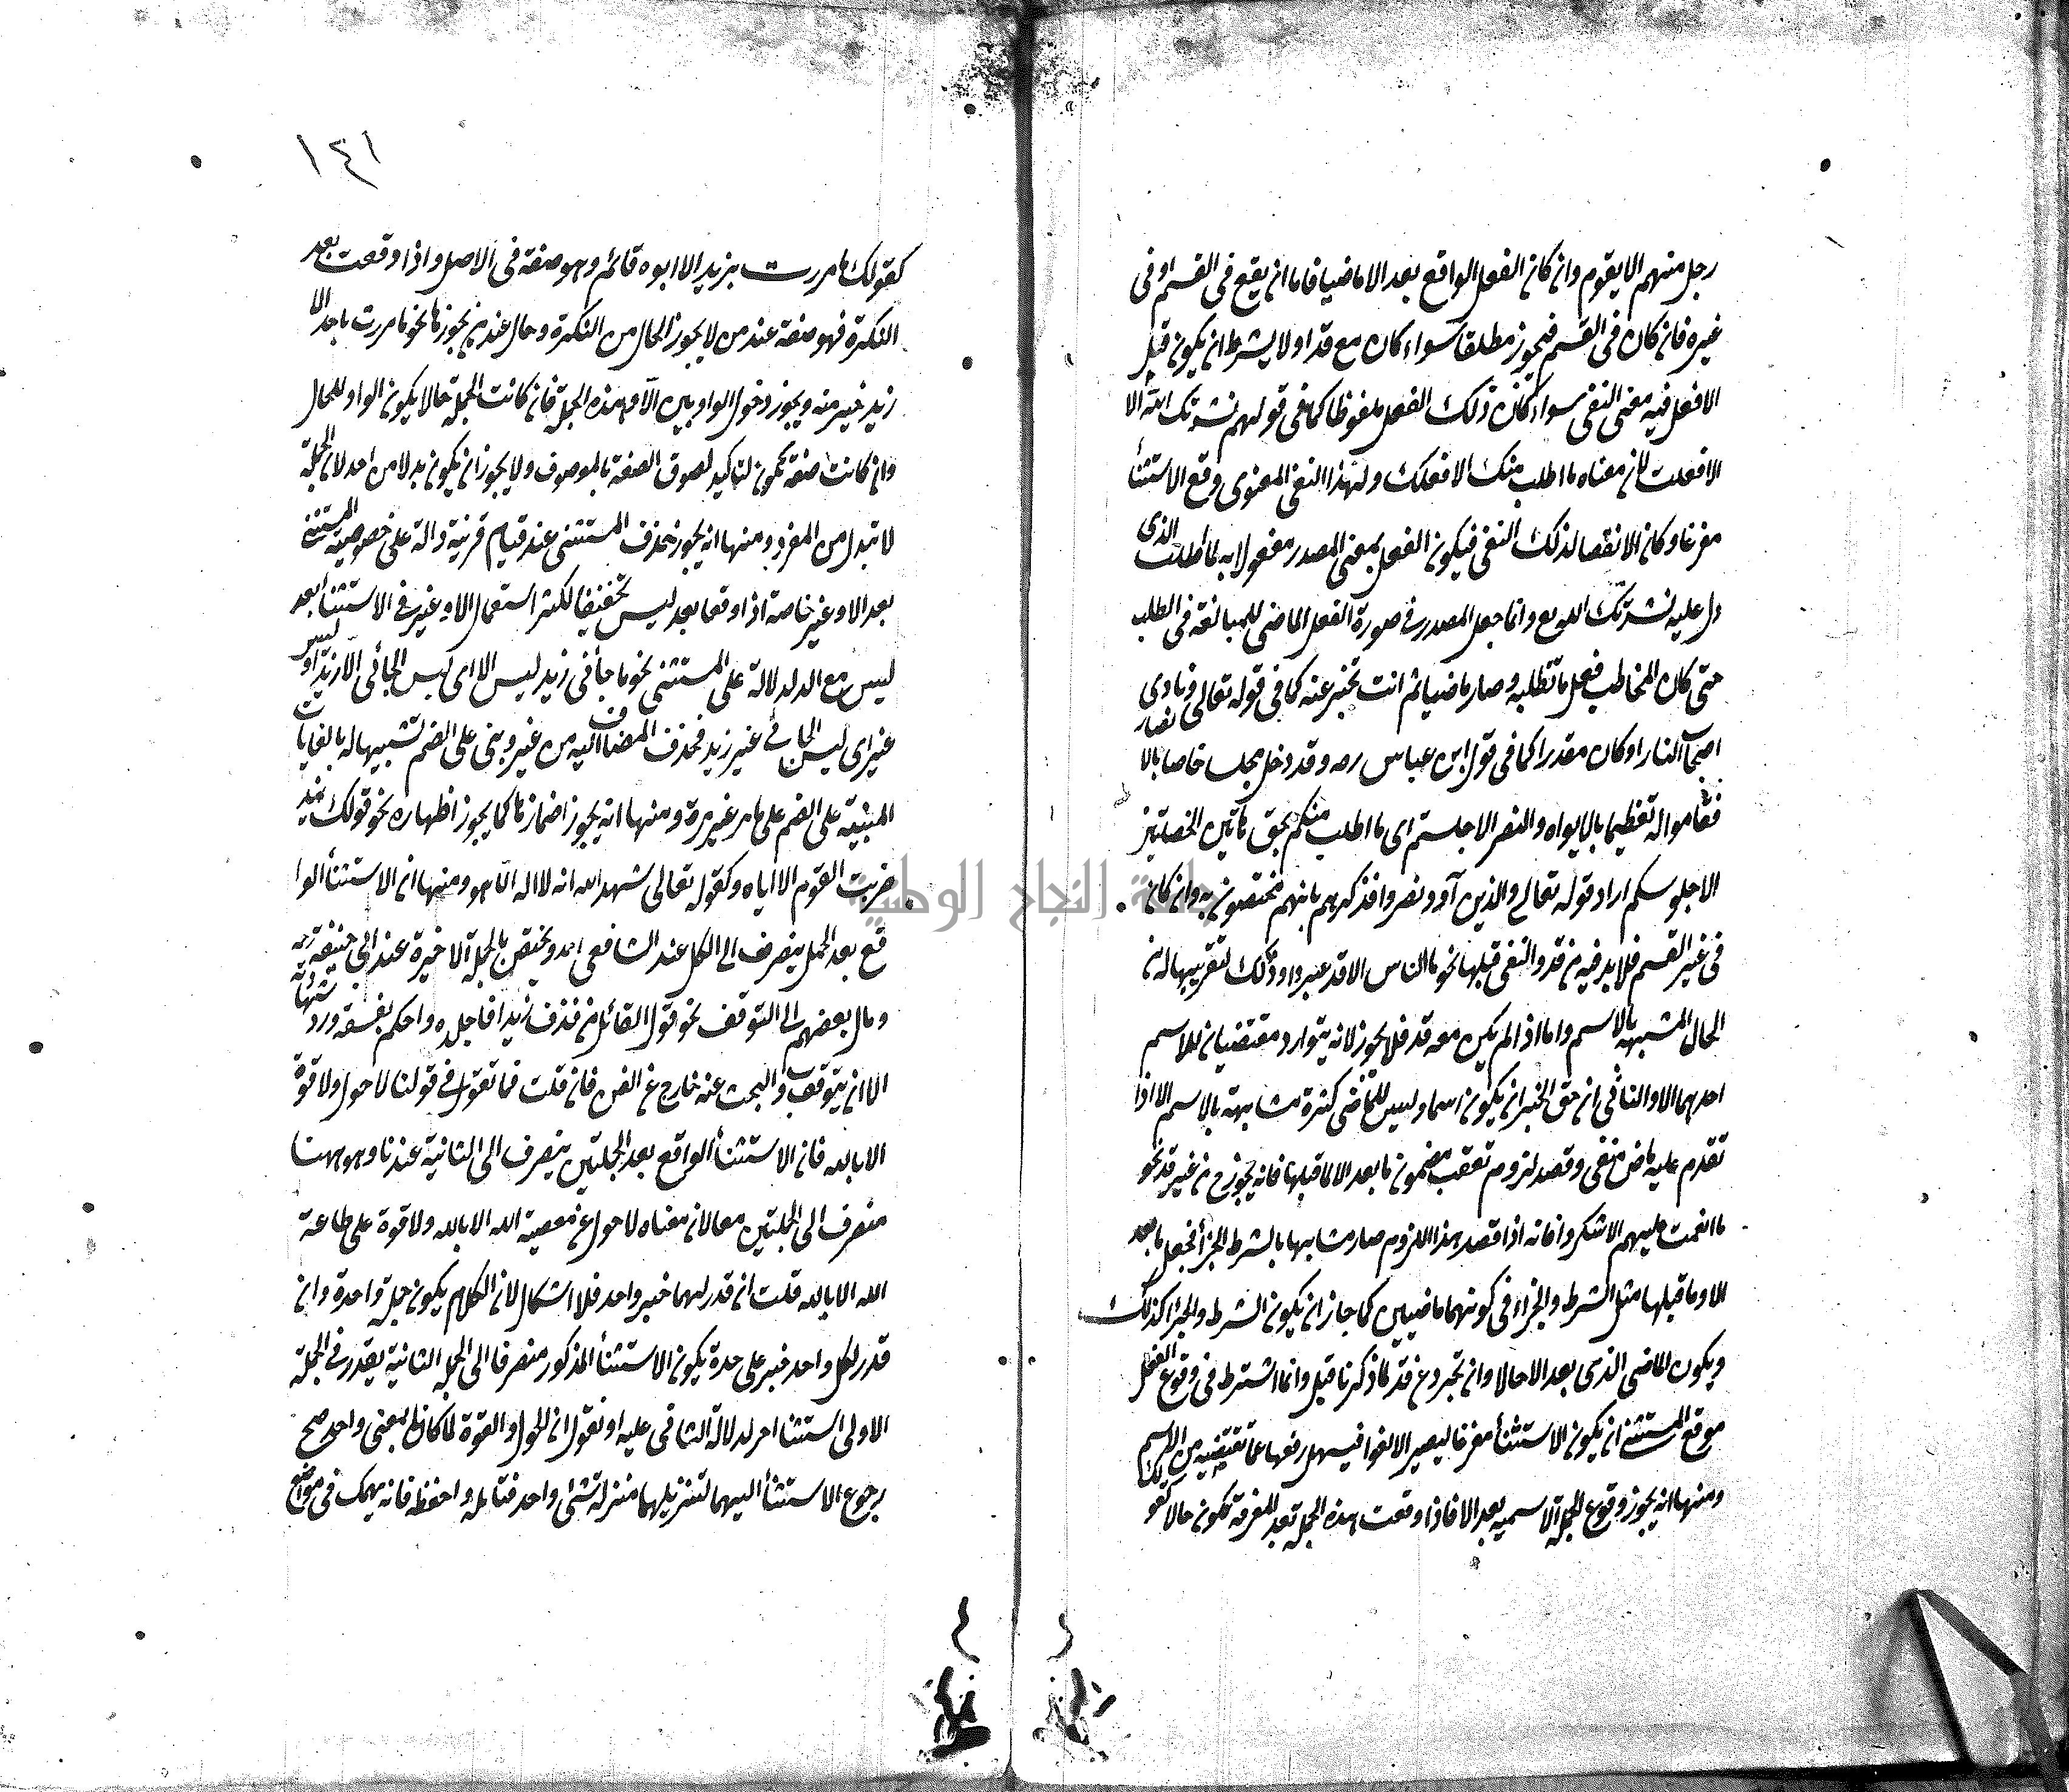 رجل منهم الا يقوم وان كان الفعل الواقع بعد الا ماضيا فاما ان يقع فى القسم او فى
غيره فان كان فى القسم فيجوز مطلقا سواء كان مع قد او لا بشرط ان يكون قبل
الا فعل فيه معنى النفى سواء كان ذلك الفعل ملفوظا كما فى قولهم نشدتك الله الا
الا فعلت لان معناه ما اطلب منك الا فعلك ولهذا النفى المعنوى وقع الاستثنأ
مفرغا وكان الا نقضا لذلك النفى فيكون الفعل بمعنى المصدر مفعولا به لما اطلب الذى
دل عليه نشدتك الله مع وانما جعل المصدر فى صورة الفعل الماضى للمبالغة فى الطلب
حتى كان المخاطب فعل ما تطلبه وصار ماضيا ثم انت تخبر عنه كما فى قوله تعالى ونادى
اصحاب النار او كان مقدرا كما فى قول ابن عباس رضه وقد دخل مجلسا خاصا بالا
نصار
فقاموا له تعظيما بالايواء والنصر الا جلستم اى ما اطلب منكم بحق هاتين الخصلتين
الا جلوسكم اراد قوله تعالى والذين آووا ونصروا فذكرهم بانهم مختصون به وان كان
فى غير القسم فلا بد فيه من قد والنفى قبلها نحو ما الناس الا قد عبروا وذلك لتقريبها له من
الحال المشبهه بالاسم واما اذا لم يكن معه قد فلا يجوز لانه يتوارد مقتضيان للاسم
احدهما الا والثانى ان حق الخبر ان يكون اسما وليس للماضى كثرة مشابهته بالاسم الا اذا
تقدم عليه ماض منفى وقصد لزوم تعقب مضمون ما بعد الا لما قبلها فانه يجوز ح من غير قد نحو
ما انعمت عليهم الا شكروا فانه اذا قصد هذا اللزوم صار مشابها بالشرط الجزأ فجعل ما بعد
الا وما قبلها مثل الشرط والجزاء فى كونهما ماضيين كما جاز ان يكون الشرط والجزا كذلك
ويكون الماضى الذى بعد الا حالا وان تجرد عن قد لما ذكرنا قبل وانما اشترط فى وقوع الفعل
موقع المستثنى ان يكون الاستثنأ مفرغا ليصير الا لغوا فيسهل رفعها عما تقتضيه من الاسم
ومنها انه يجوز وقوع الجملة الاسمية بعد الا فاذا وقعت هذه الجملة بعد المعرفة تكون حالا كقو
لك
١٤١
كقولك ما مررت بزيد الا ابوه قائم وهو صفة فى الاصل واذا وقعت بعد
النكرة فهو صفة عند من لا يجوز الحال من النكرة وحال عند من يجوزها نحو ما مررت باحد الا
زيد خير منه ويجوز دخول الواو بين الا وهذه الجملة فان كانت الجملة حالا يكون الواو للحال
وان كانت صفة تكون لتاكيد لصوق الصفة بالموصوف ولا يجوز ان يكون بدلا من احد لان الجملة
لا تبدل من المفرد ومنها انه يجوز حذف المستثنى عند قيام قرينة دالة على خصوصية المستثنى
بعد الا وغير خاصة اذا وقعا بعد ليس تخفيفا لكثر استعمال الا وغير فى الاستثنا بعد
ليس مع الدلالة على المستثنى نحو ما جأنى زيد ليس الا اى ليس الجائى الا زيد او ليس
غير اى ليس الجائى غير زيد فحذف المضاف اليه من غير وبنى على الضم تشبيها له بالغايات
المبنية على الضم على ما مر غير مرة ومنها انه يجوز اضمارها كما يجوز اظهاره نحو قولك
ضربت القوم الا اياه وكقوله تعالى شهد الله انه لا اله الا هو ومنها ان الاستثنأ الوا
قع بعد الجمل ينصرف الى الكل عند الشافعى ويختص بالجملة الاخيرة عند ابى حنيفة رحمه
ومال بعضهم الى التوقف نحو قول القائل من قذف زيدا فاجلده واحكم بفسقه ورد شهادته
الا ان يتوقف والبحث عنه خارج عن الفن فان قلت فما تقول فى قولنا لا حول ولا قوة
الا بالله فان الاستثنأ الواقع بعد الجملتين ينصرف الى الثانية عندنا وهو ههنا
منصرف الى الجملتين معا لان معناه لا حول عن معصية الله الا بالله ولا قوة على طاعة
الله الا بالله قلت ان قدر لهما خبر واحد فلا اشكال لان الكلام يكون جملة واحدة وان
قدر لكل واحد خبر على حدة يكون الاستثنأ المذكور منصرفا الى الجملة الثانية يقدر فى الجملة
الاولى استثنا اخر لدلالة الثانى عليه او نقول ان الحول والقوة لما كانا بمعنى واحد صح
رجوع الاستثنأ اليهما لتنزيلهما منزلة شئ واحد فتامله واحفظه فانه يهمك فى مواضع
جامعة النجاح الوطنية